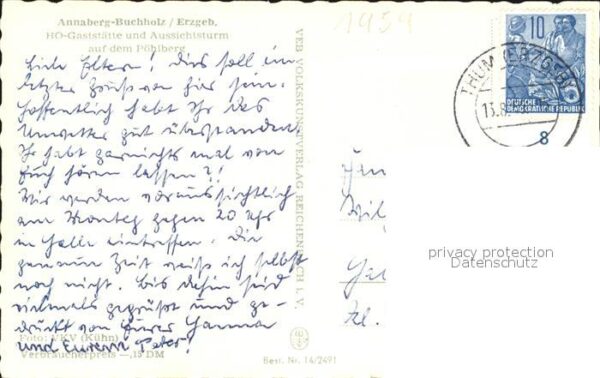 Annaberg-Buchholz / Erzgeb,
HO-Gaststätte und Aussichtsturm
auf dem Pöhlberg
1959
Liebe Eltern! Dies soll ein
letzter Gruß von hier sein.
Hoffentlich habt Ihr das
Unwetter gut überstanden.
Ihr habt garnichts mal von
Euch hören lassen?!
Wir werden voraussichtlich
am Montag gegen 20 Uhr
in Halle eintreffen. Die
genaue Zeit weiß ich selbst
noch nicht. Bis dahin seid
vielmals gegrüßt und ge-
drückt von Eurer Hanna
und Eurem Peter!
Foto: VKV (Kühn)
Verbraucherpreis -,15 DM
VEB VOLKSKUNSTVERLAG REICHENBACH i. V.
Best. Nr. 14/2491
10
DEUTSCHE
DEMOKRATISCHE REPUBLIK
THUM (ERZGEB)
13.8.
8
privacy protection
Datenschutz